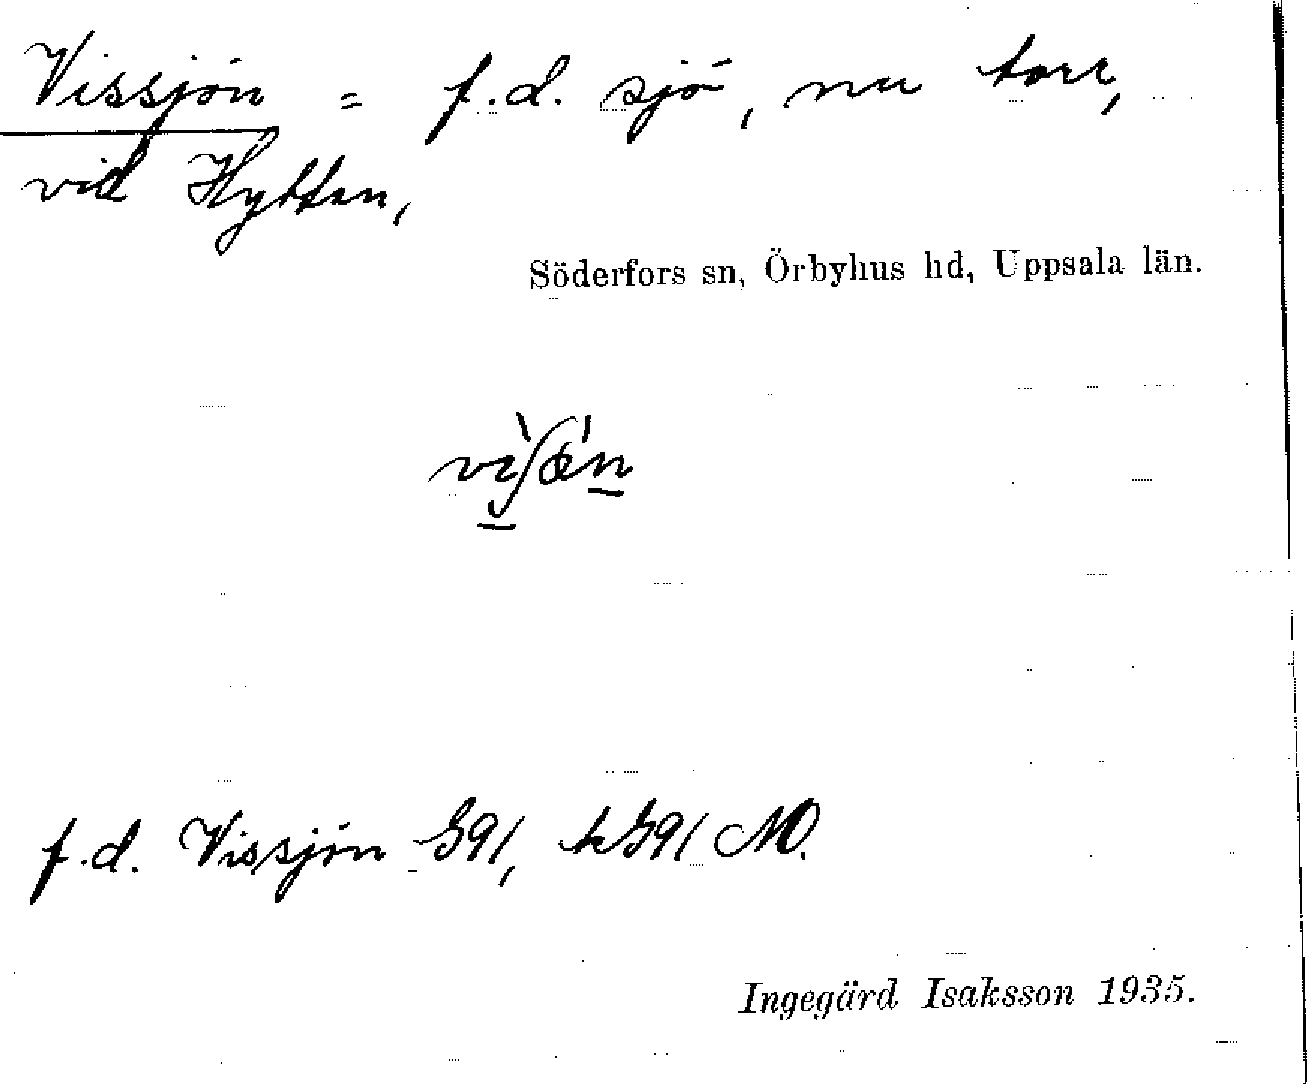 Vissjön = f.d. sjö, nu torr,
vid Hyttan,
Söderfors sn, Örbyhus hd, Uppsala län.
f.d. Vissjön G91, kG91 NO.
Ingegärd Isaksson 1935.